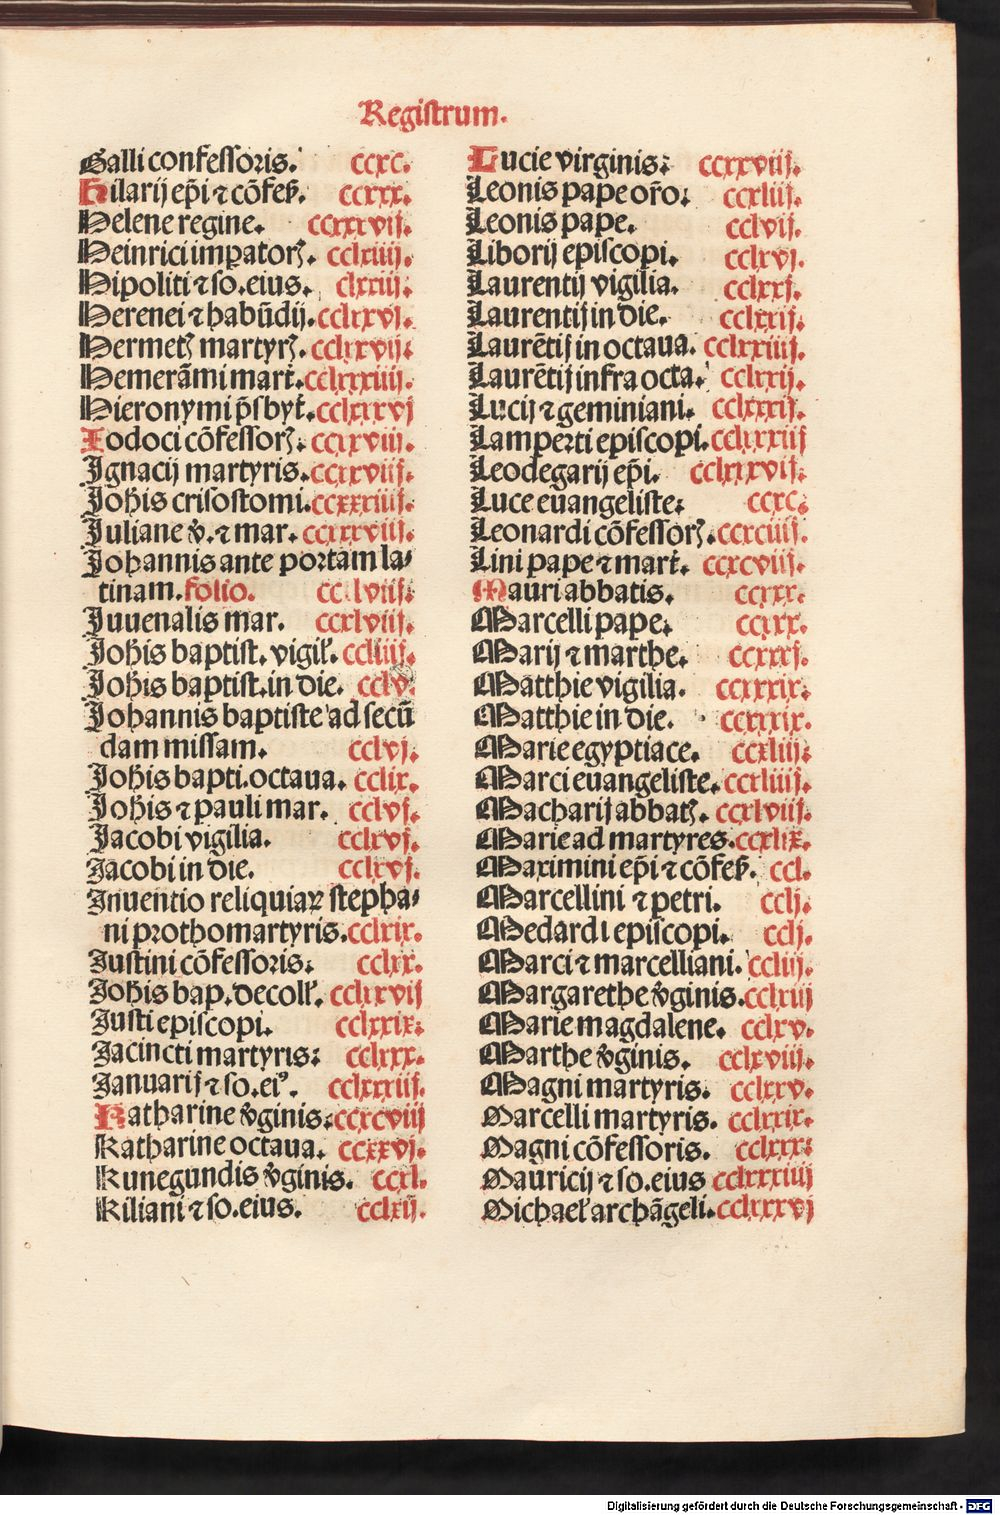 Registrum.
Galli confessoris. ccxc.
Hilarij ep̄i ⁊ cōfeß. ccxxx.
Helene regine. ccxxxvij.
Heinrici imperatorꝫ. cclxiiij.
Hipoliti ⁊ so. eius. clxxiij.
Herenei ⁊ habūdij. cclxxvj.
Hermetꝫ martyrꝫ. cclxxvij.
Hemerāmi mart̄. cclxxxiiij.
Hieronymi p̄sbyt̄. cclxxxvj
Iodoci cōfessorꝫ. ccxxviij.
Ignacij martyris. ccxxviij.
Joh̄is crisostomi. ccxxxiiij.
Juliane v̄. ⁊ mar. ccxxxviij.
Johannis ante portam la⸗
tinam. folio. cclviij.
Juuenalis mar. ccxlviij.
Joh̄is baptist. vigil̄. ccliiij.
Joh̄is baptist. in die. cclv.
Johannis baptiste ad secū
dam missam. cclvj.
Joh̄is bapti. octaua. cclix.
Joh̄is ⁊ pauli mar. cclvj.
Jacobi vigilia. cclxvj.
Jacobi in die. cclxvj.
Inuentio reliquiaꝝ stepha⸗
ni prothomartyris. cclxix.
Justini cōfessoris: cclxx.
Joh̄is bap. decoll̄. cclxxvij
Justi episcopi. cclxxix.
Jacincti martyris: cclxxx.
Januarij ⁊ so. eiꝰ. cclxxxiij.
Katharine v̄ginis: ccxcviij
Katharine octaua. ccxxvj.
Kunegundis v̄ginis. ccxl.
Kiliani ⁊ so. eius. cclxij.
Lucie virginis: ccxxviij.
Leonis pape or̄o: ccxliij.
Leonis pape. cclvij.
Liborij episcopi. cclxvj.
Laurentij vigilia. cclxxj.
Laurentij in die. cclxxij.
Laurētij in octaua. cclxxiiij.
Laurētij infra octa. cclxxij.
Lucij ⁊ geminiani. cclxxxij.
Lamperti episcopi. cclxxxij
Leodegarij ep̄i. cclxxxvij.
Luce euangeliste: ccxc.
Leonardi cōfessorꝫ. ccxciij.
Lini pape ⁊ mart̄. ccxcviij.
Mauri abbatis. ccxxx.
Marcelli pape. ccxxx.
Marij ⁊ marthe. ccxxxj.
Matthie vigilia. ccxxxix.
Matthie in die. ccxxxix.
Marie egyptiace. ccxliij.
Marci euangeliste. ccxliiij.
Macharij abbatꝫ. ccxlviij.
Marie ad martyres. ccxlix.
Maximini ep̄i ⁊ cōfeß. ccl.
Marcellini ⁊ petri. cclj.
Medardi episcopi. cclj.
Marci ⁊ marcelliani. ccliij.
Margarethe v̄ginis. cclxiij
Marie magdalene. cclxv.
Marthe v̄ginis. cclxviij.
Magni martyris. cclxxv.
Marcelli martyris. cclxxix.
Magni cōfessoris. cclxxx.
Mauricij ⁊ so. eius cclxxxiiij
Michael̄ archāgeli. cclxxxvj
Digitalisierung gefördert durch die Deutsche Forschungsgemeinschaft - DFG